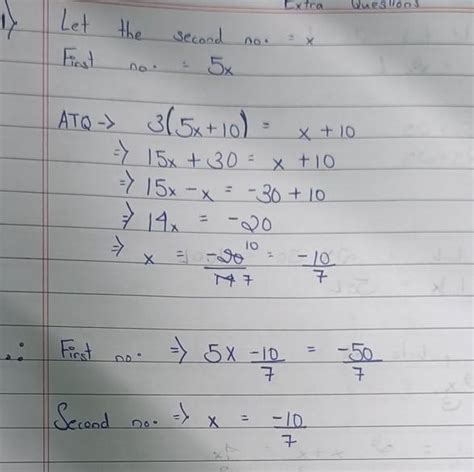 Extra Questions
1) Let the second no. = x
First no. = 5x
ATQ → 3(5x+10) = x + 10
⇒ 15x + 30 = x + 10
⇒ 15x - x = -30 + 10
⇒ 14x = -20
⇒ x = -20 10 / 14 7 = -10/7
∴ First no. ⇒ 5 x -10/7 = -50/7
Second no. ⇒ x = -10/7